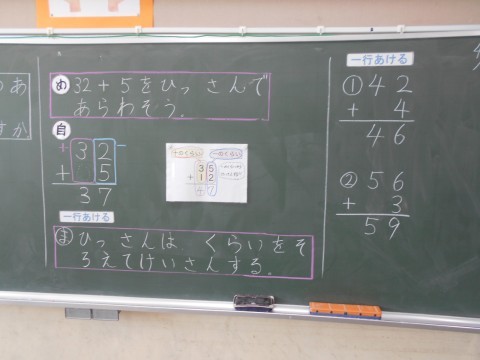 あ
すか
め 32+5をひっさんで
あらわそう。
自
32
+ 5
37
十のくらい 一のくらい
35
+12
47
一行あける
ま ひっさんは くらいをそ
ろえてけいさんする。
一行あける
① 42
+ 4
46
② 56
+ 3
59